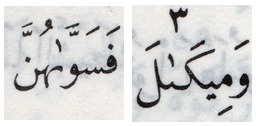 وَمِيكَىٰلَ ٣
فَسَوَّىٰهُنَّ